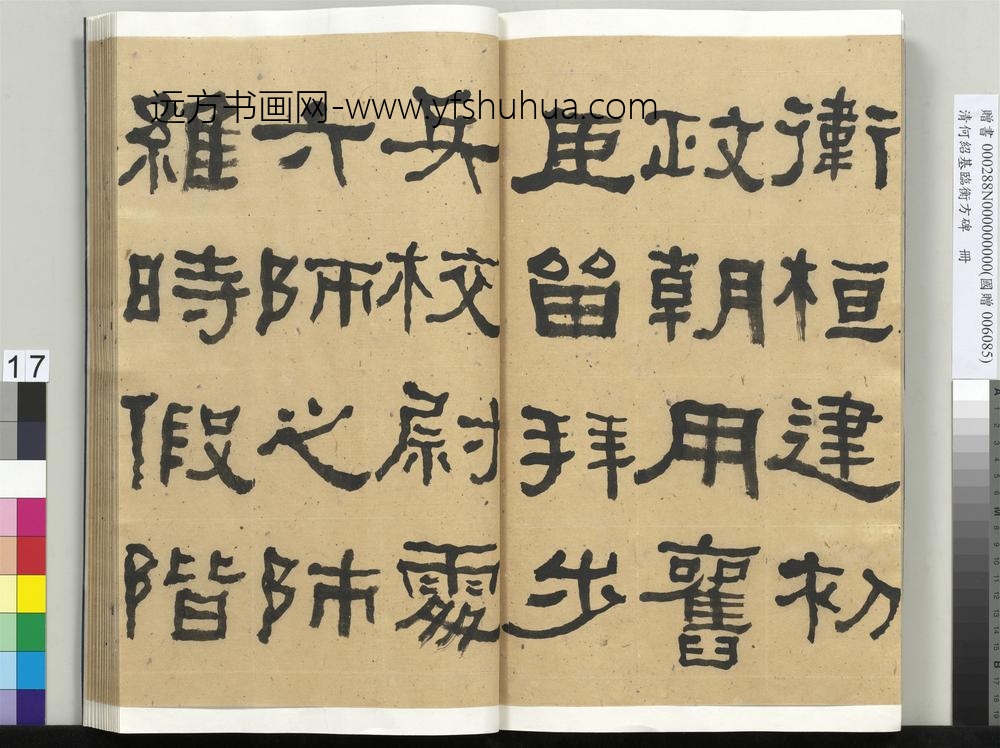 衛桓建初
政朝用舊
臣留拜步
兵校尉處
六師之帥
維時假階
远方书画网-www.yfshuhua.com
贈書 000288N000000000(國贈 006085)
清何紹基臨衡方碑 冊
17